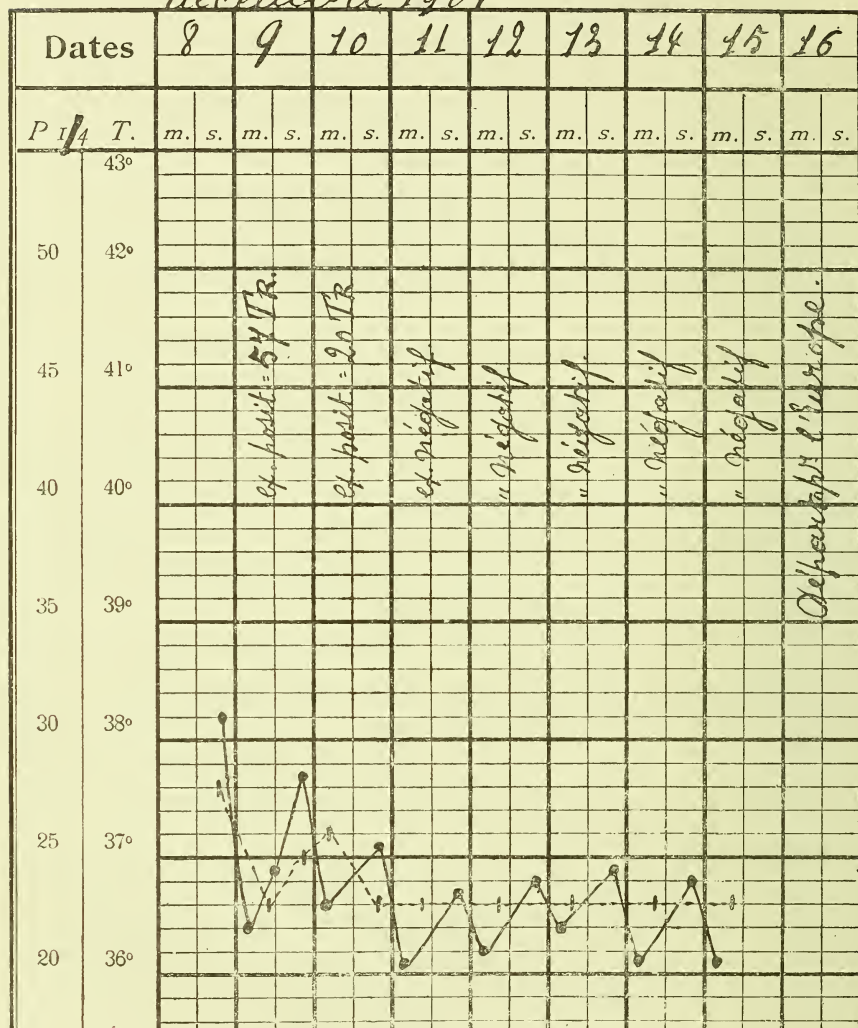 Décembre 1907
Dates 8 9 10 11 12 13 14 15 16
P 1/4 T. m. s. m. s. m. s. m. s. m. s. m. s. m. s. m. s. m. s.
43°
50 42°
45 41°
40 40°
35 39°
30 38°
25 37°
20 36°
ex. posit = 57 Tr.
ex. posit = 20 Tr
ex. négatif.
" négatif
" négatif.
" négatif
" négatif
Départ pr l'Europe.